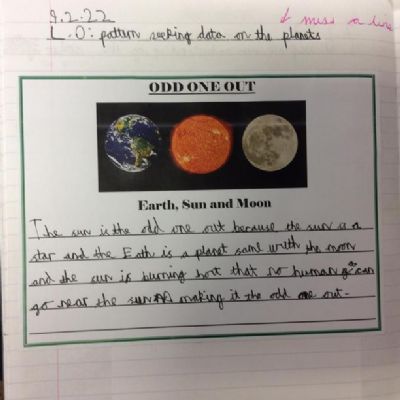 9.2.22
↓ miss a line
L.O: pattern seeking data on the planets
ODD ONE OUT
Earth, Sun and Moon
The sun is the odd one out because the sun is a
star and the Eath is a planet same with the moon
and the sun is burning hot that no human can
go near the sun making it the odd one out.